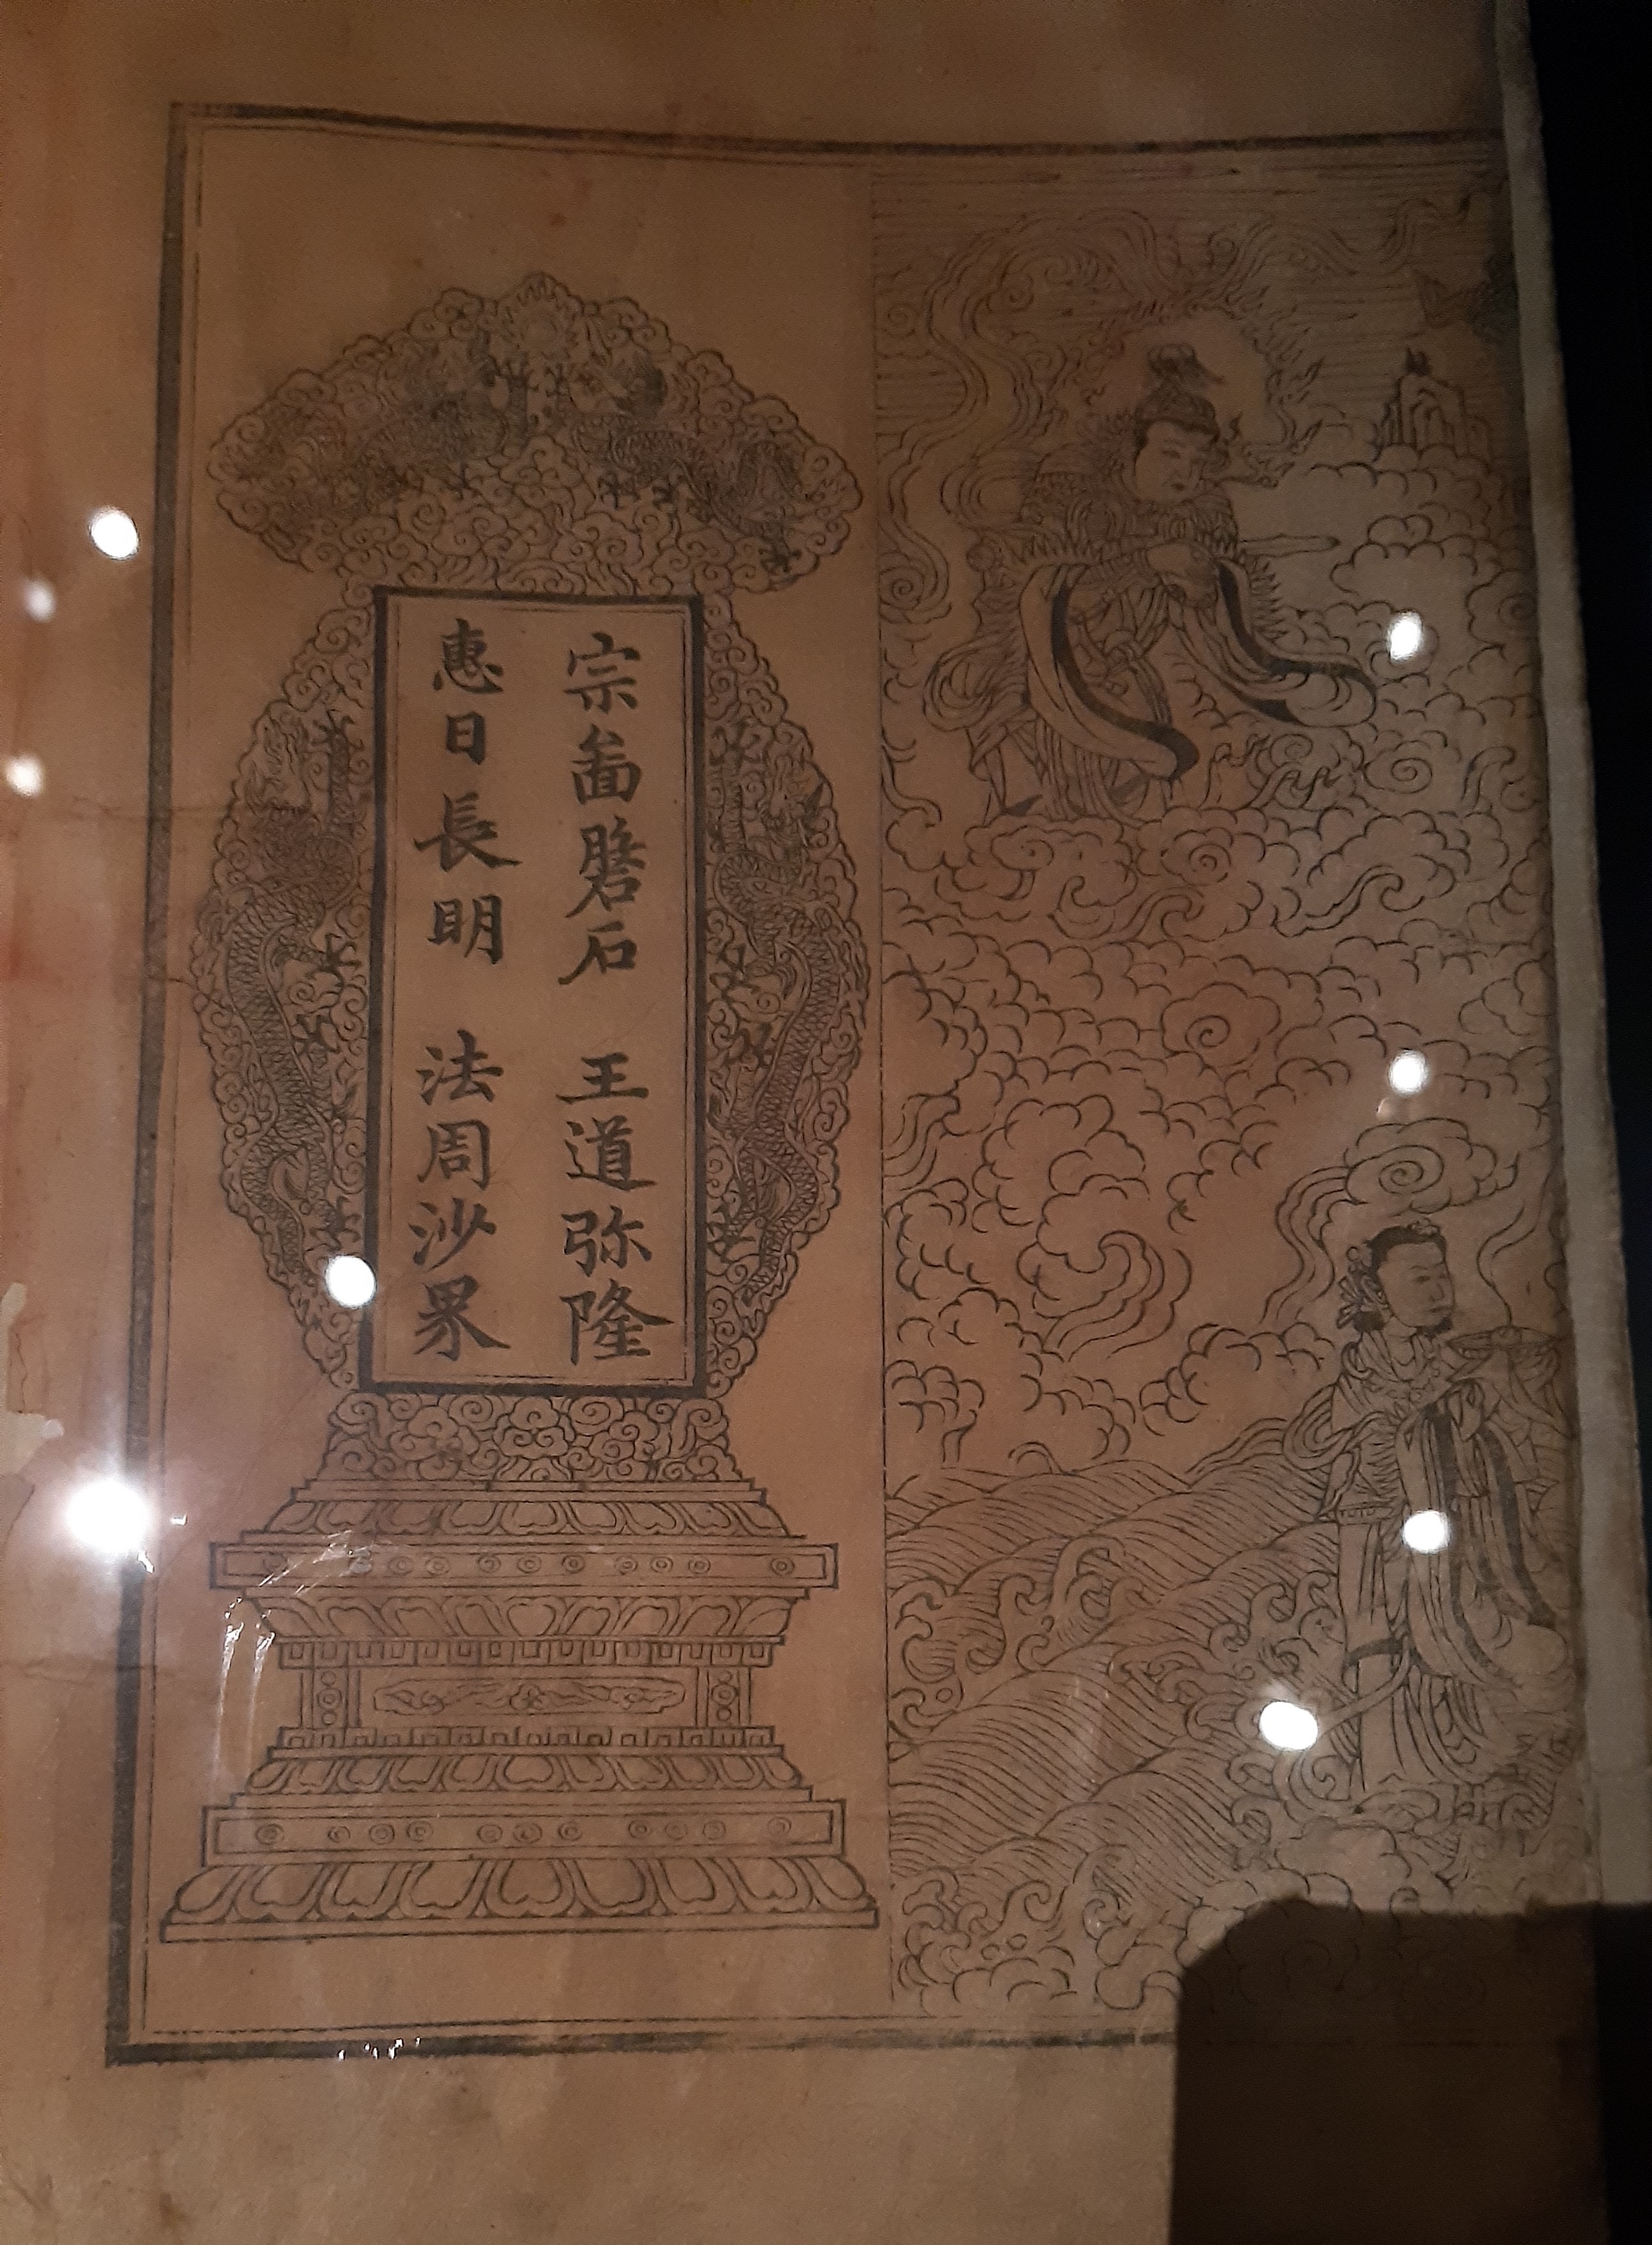 宗啚磐石 王道弥隆
惠日長明 法周沙界